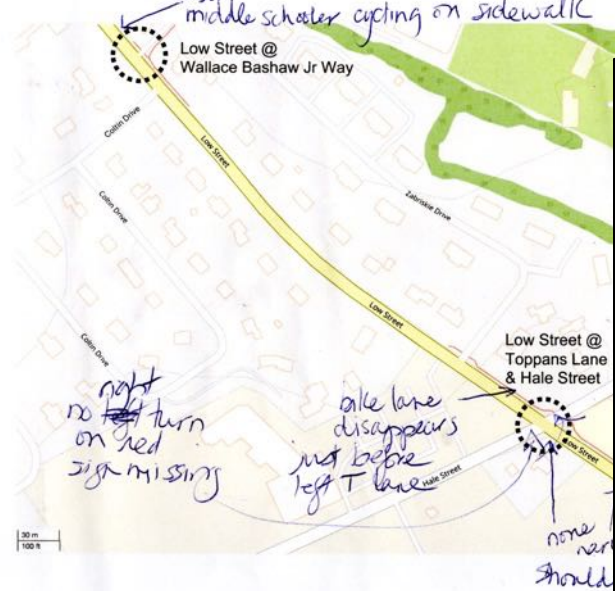 middle schooler cycling on sidewalk
Low Street @
Wallace Bashaw Jr Way
Coltin Drive
Low Street
Coltin Drive
Zabriskie Drive
Low Street
Coltin Drive
Low Street @
Toppans Lane
& Hale Street
right
no left turn
on red
sign missing
bike lane
disappears
just before
left T lane
Hale Street
Low Street
none
30 m
100 ft